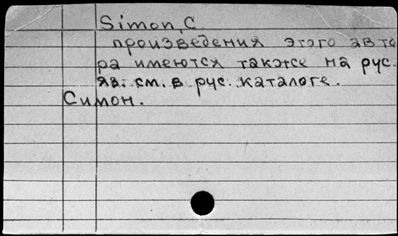 Simon, C.
произведения этого авто
ра имеются также на рус.
яз. см. в рус. каталоге.
Симон.